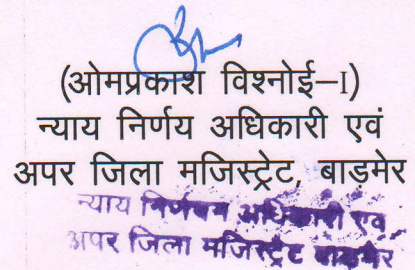 (ओमप्रकाश विश्नोई–I)
न्याय निर्णय अधिकारी एवं
अपर जिला मजिस्ट्रेट, बाडमेर
न्याय निर्णयन अधिकारी एवं
अपर जिला मजिस्ट्रेट बाडमेर